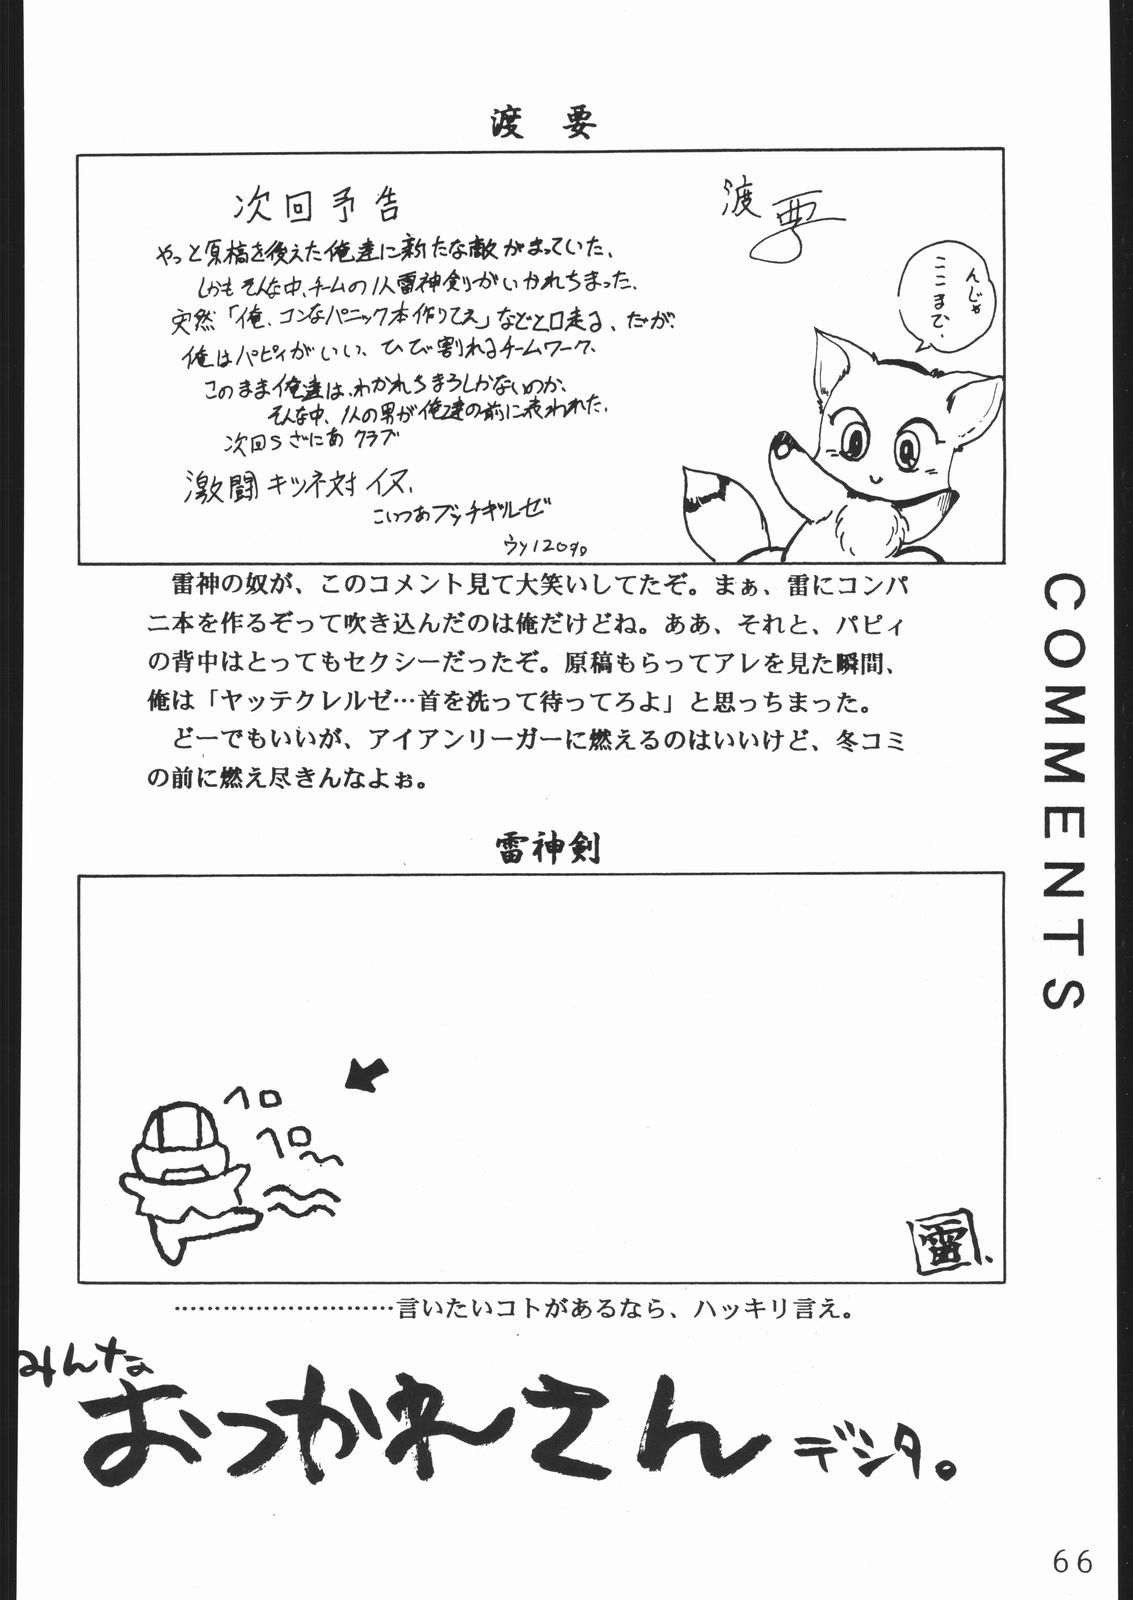 渡 要
次回予告
渡要
やっと原稿を後えた俺達に新たな敵がまっていた、
しかもそんな中、チームの1人雷神剣がいかれちまった、
突然「俺、コンなパニック本作りてえ」などと口走る、だが、
俺はパピィがいい、ひび割れるチームワーク、
このまま俺達は、わかれちまうしかないのか、
そんな中、1人の男が俺達の前に表われた、
次回Sざにあクラブ
激闘キツネ対イヌ、
こいつあブッチギルゼ
120%
んじゃ
ここまで、
雷神の奴が、このコメント見て大笑いしてたぞ。まぁ、雷にコンパ
ニ本を作るぞって吹き込んだのは俺だけどね。ああ、それと、パピィ
の背中はとってもセクシーだったぞ。原稿もらってアレを見た瞬間、
俺は「ヤッテクレルゼ…首を洗って待ってろよ」と思っちまった。
どーでもいいが、アイアンリーガーに燃えるのはいいけど、冬コミ
の前に燃え尽きんなよぉ。
COMMENTS
雷神剣
ヘロ
ヘロ
雷
………………………言いたいコトがあるなら、ハッキリ言え。
みんな
おつかれさん
デシタ。
66